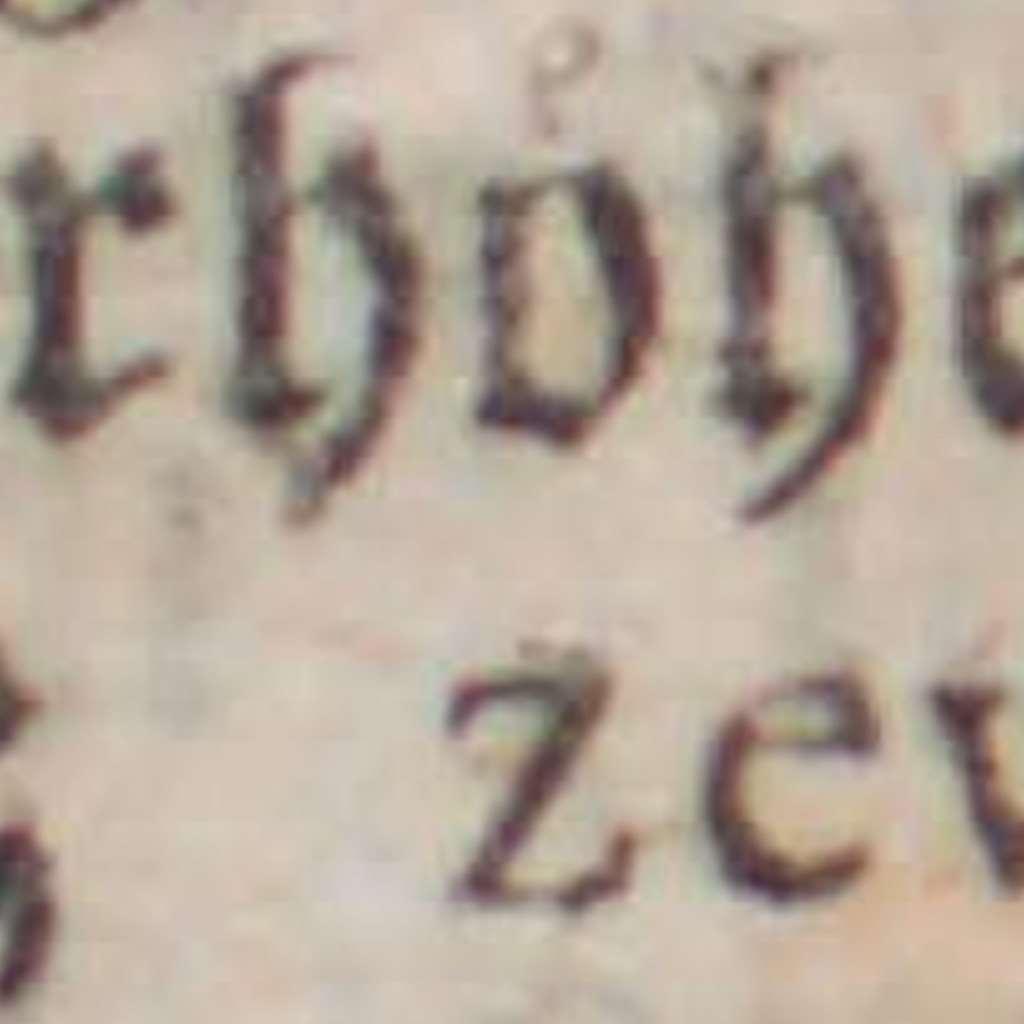 rhoͤhe
zev